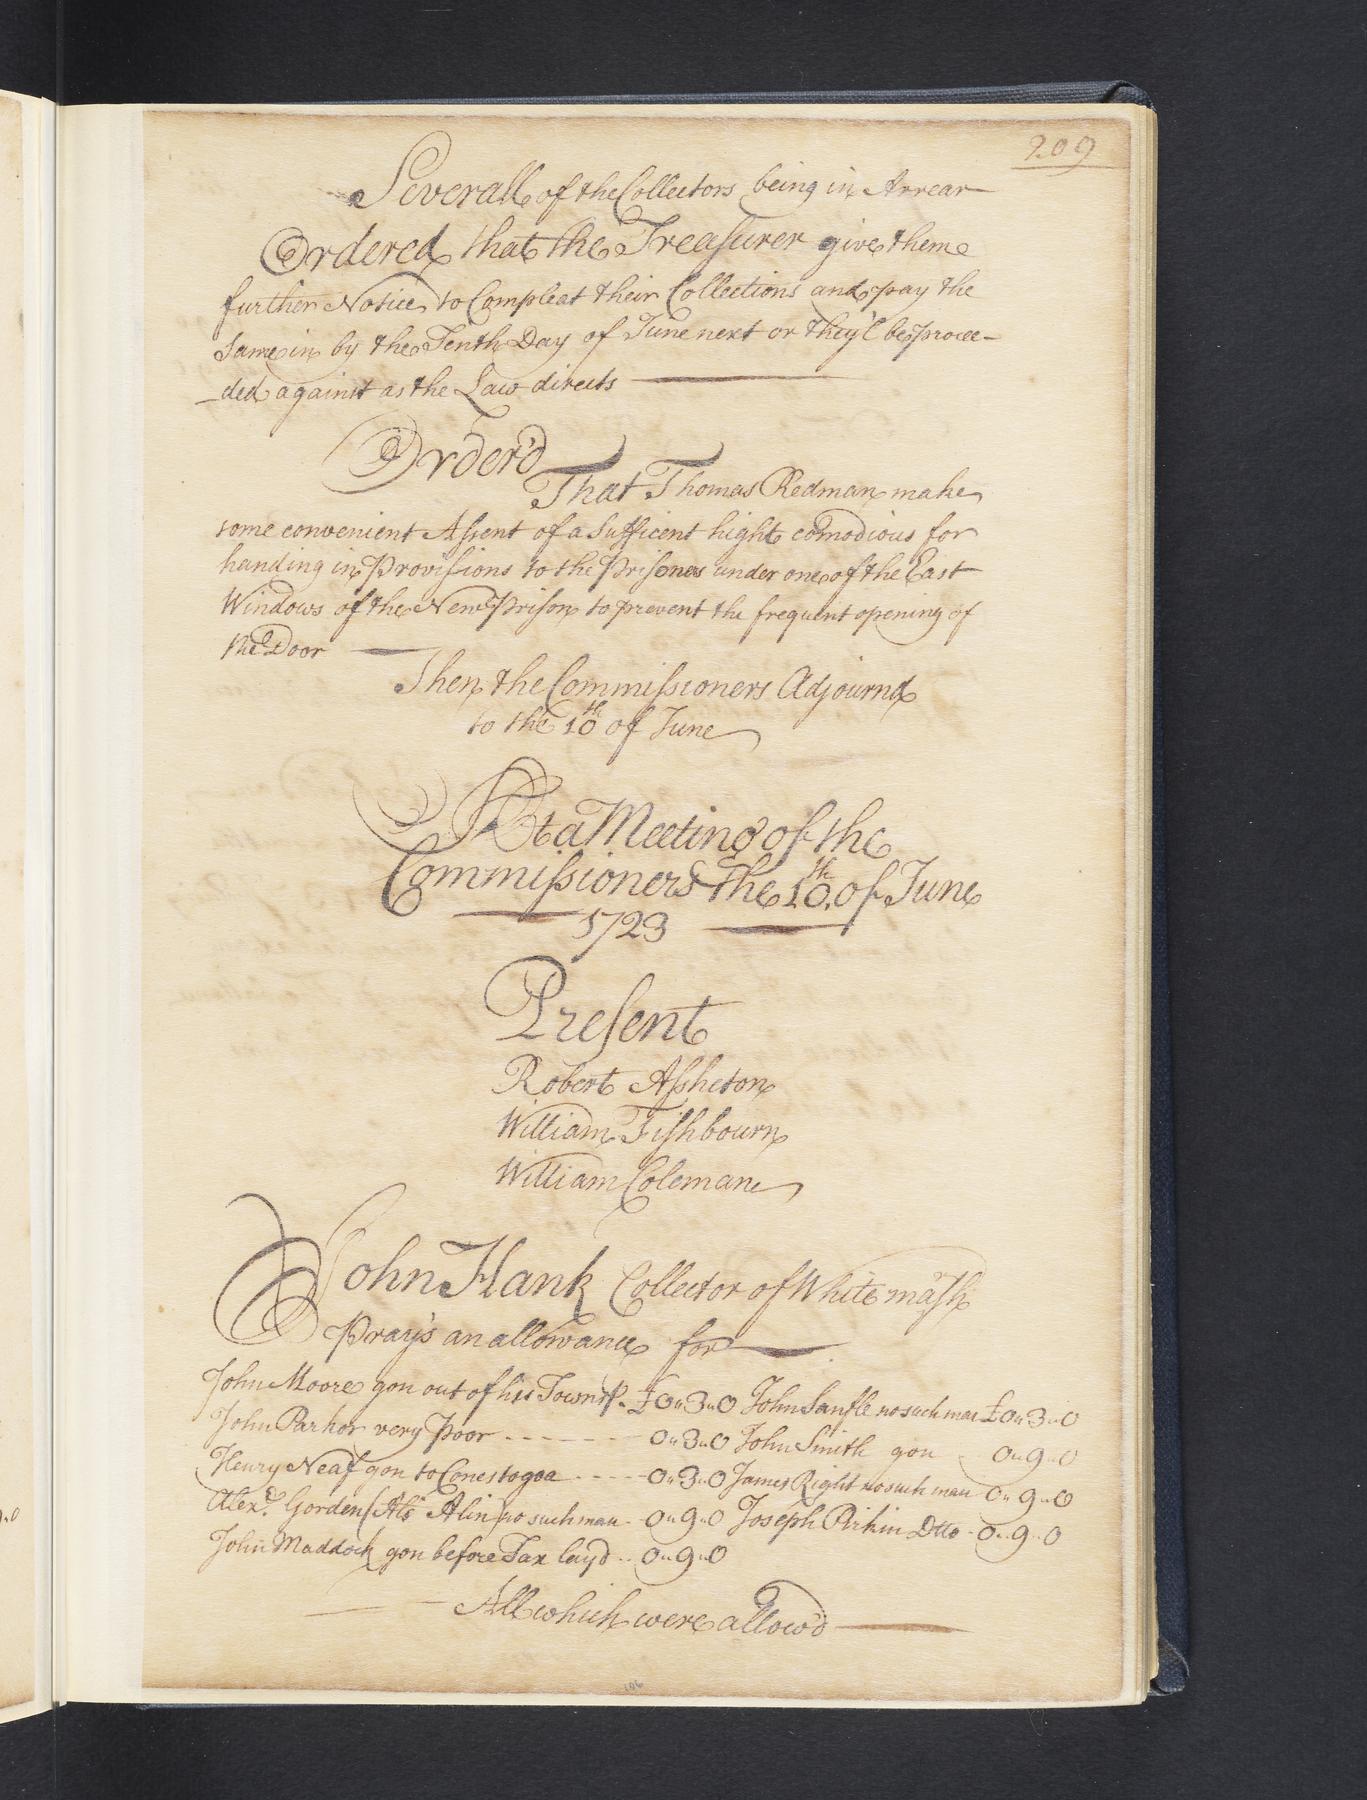 209
Severall of the Collectors being in Arrear
Ordered that the Treasurer give them
further Notice to Compleat their Collections and pay the
Same in by the Tenth Day of June next or they'l be procee-
-ded against as the Law directs
Order'd
That Thomas Redman make
some convenient Assent of a Sufficent hight comodious for
handing in Provisions to the Prisoners under one of the East
Windows of the New Prison to prevent the frequent opening of
the Door
Then the Commissioners Adjournd
to the 10th of June
At a Meeting of the
Commissioners the 10th of June
1723
Present
Robert Assheton
William Fishbourn
William Coleman
John Hank Collector of Whitemash
Pray's an allowance for
John Moore gon out of his Townsp. £0"3"0 John Sanfle no such man £0"3"0
John Parker very poor 0"3"0 John Smith gon 0"9"0
Henry Neaf gon to Conestogoa 0"3"0 James Right no such man 0"9"0
Alexd. Gorden (Als Alin) no such man 0"9"0 Joseph Pirkin Dtto 0"9"0
John Maddock gon before Tax layd 0"9"0
All which were allow'd
106